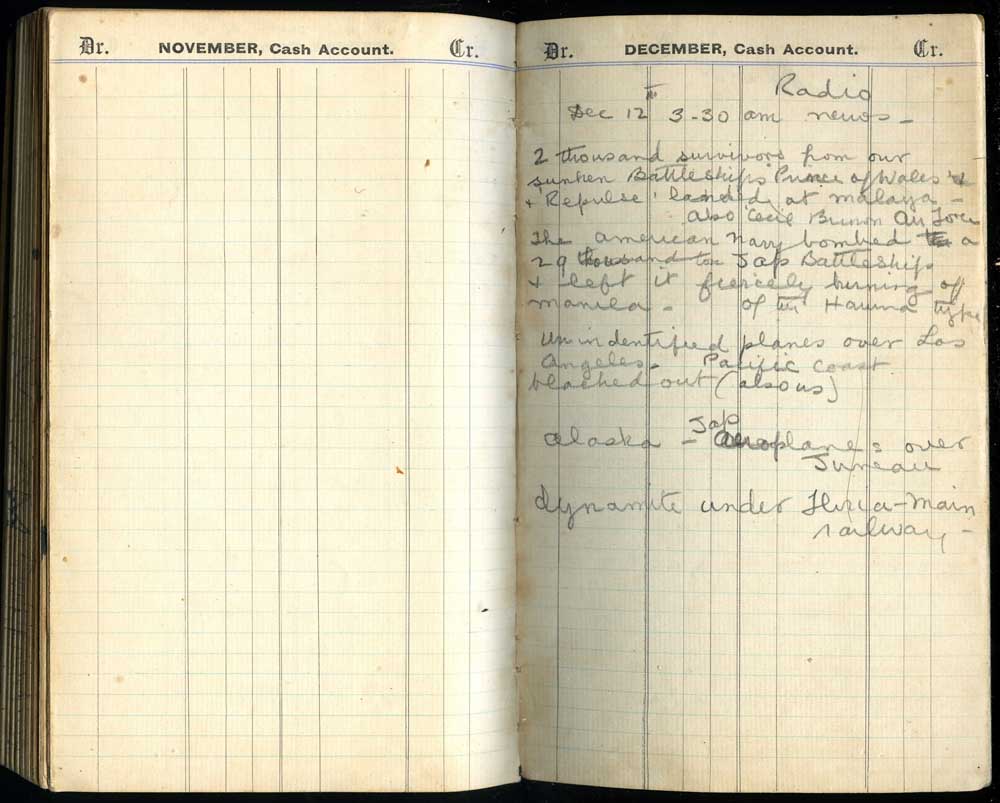 Dr. NOVEMBER, Cash Account. Cr.
Dr. DECEMBER, Cash Account. Cr.
Radio
Dec 12th 3-30 am news -
2 thousand survivors from our
sunken Battleships Prince of Wales &
& 'Repulse' landed at malaya -
also Cecil Brown Air Force
The american navy bombed a
29 thousand ton Jap Battleship
& left it fiercely burning off
manila - of the type
unindentified planes over Los
Angeles. Pacific Coast
blacked out (also us)
alaska - Jap aeroplanes over
Juneau
dynamite under - main
railway -